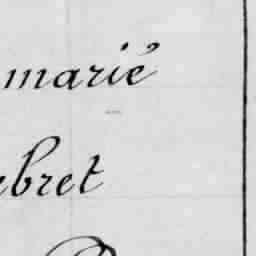 marié
bret